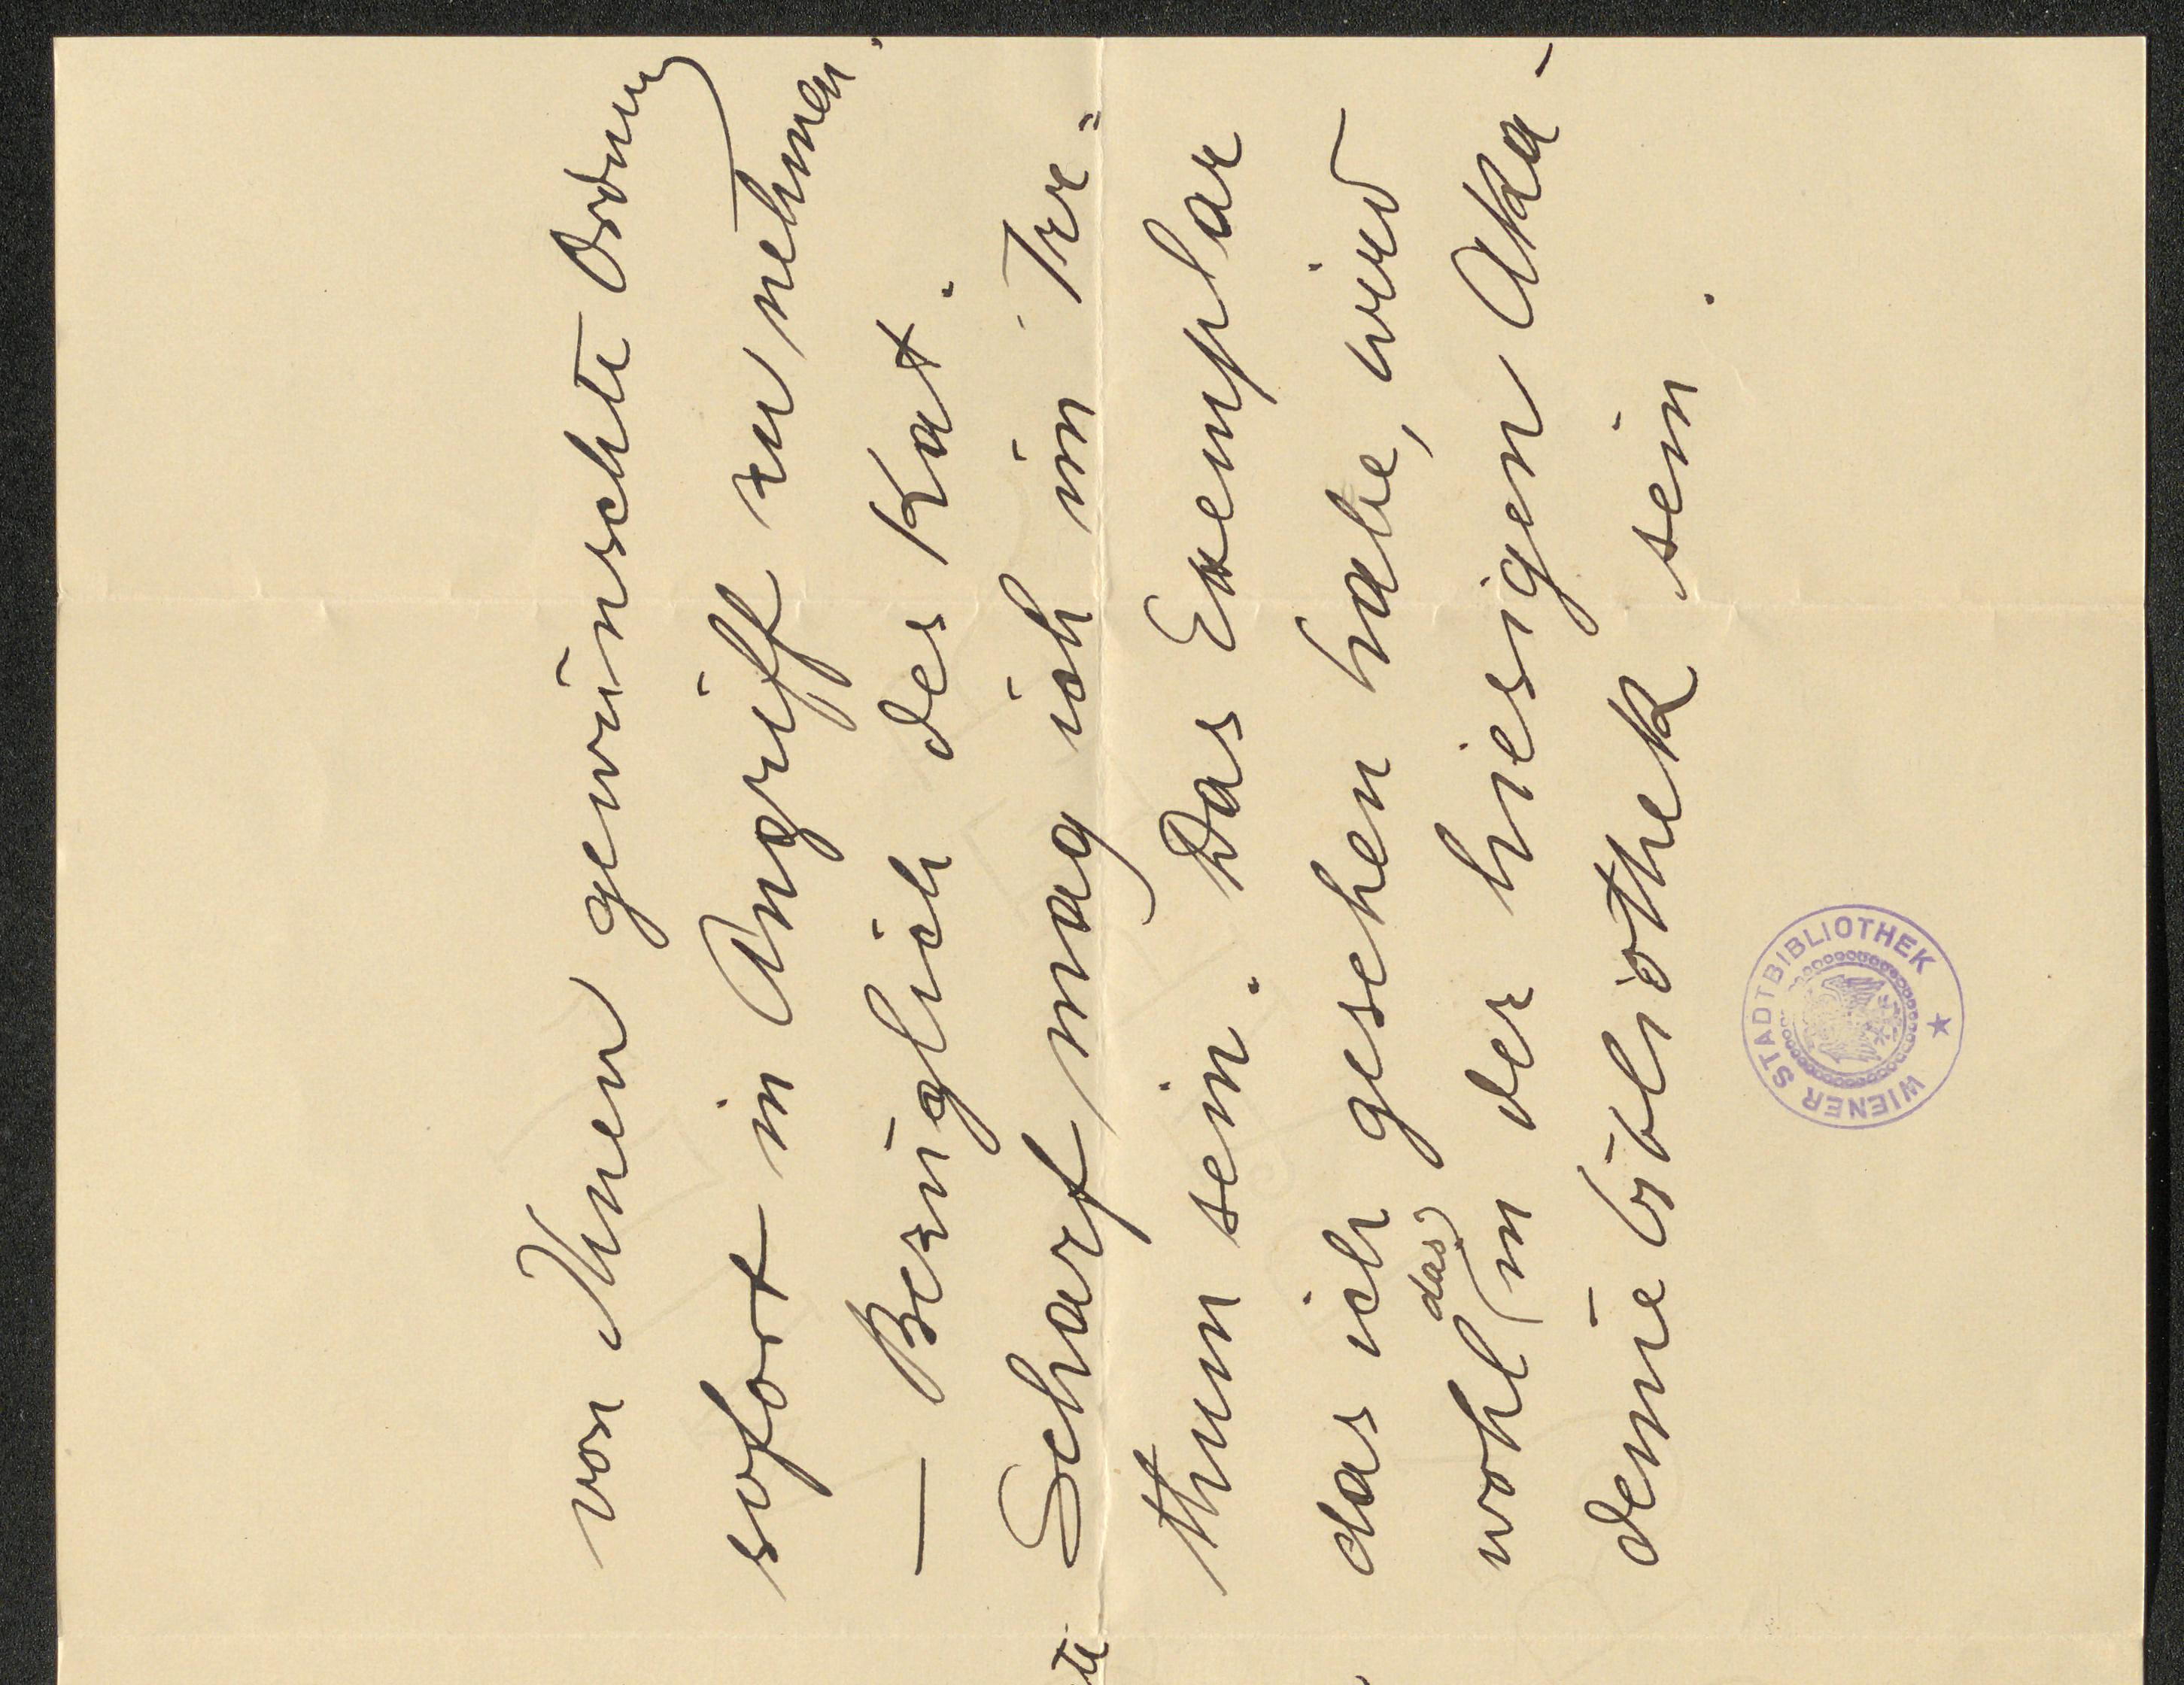 von Ihnen gewünschte Ordnung
sofort in Angriff zu nehmen.
– Bezüglich des Kat.
Scharf mag ich im Irr=
thum sein. Das Exemplar
das ich gesehen habe, wird
wohl (das) in der hiesigen Aka-
demie bibliothek sein.
WIENER STADTBIBLIOTHEK